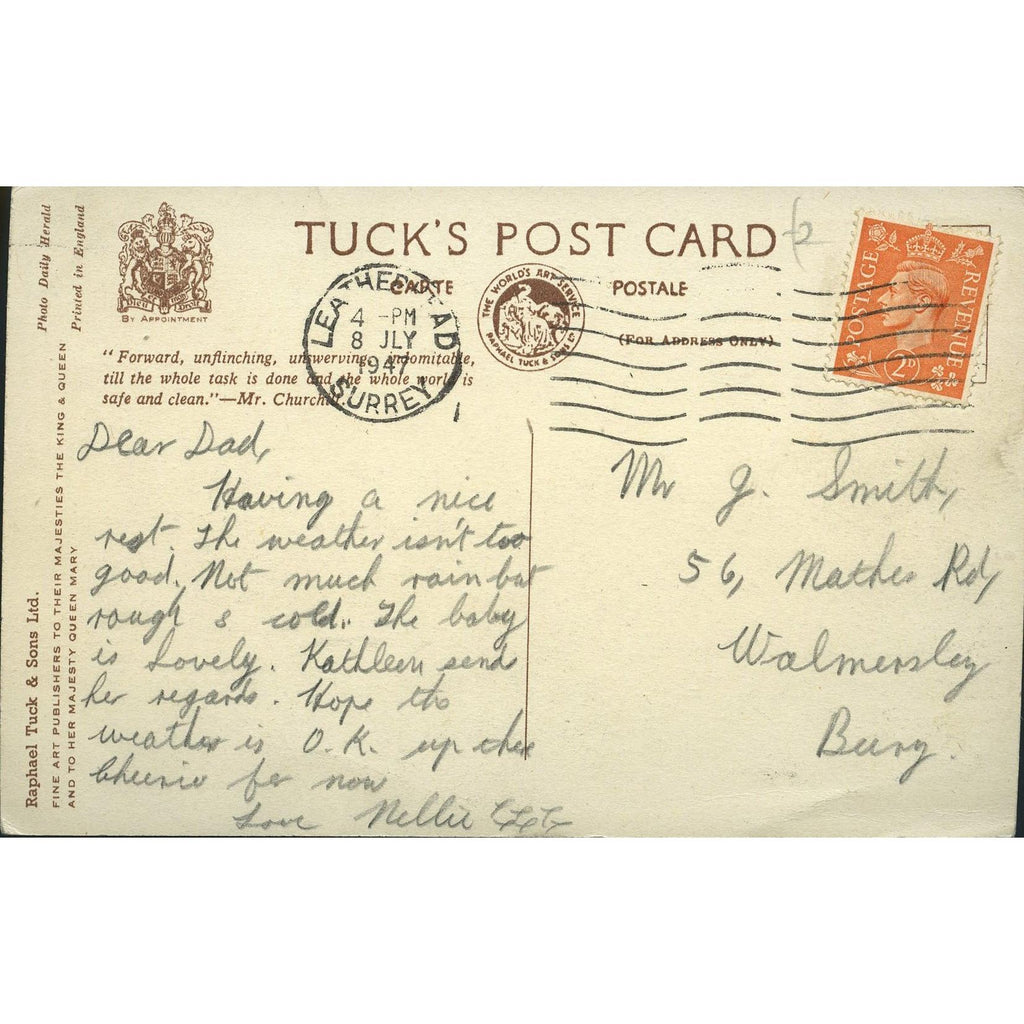 TUCK'S POST CARD
CARTE POSTALE
(FOR ADDRESS ONLY)
THE WORLD'S ART SERVICE
RAPHAEL TUCK & SONS LTD
BY APPOINTMENT
Photo Daily Herald
Printed in England
"Forward, unflinching, unswerving, indomitable,
till the whole task is done and the whole world is
safe and clean."—Mr. Churchill.
LEATHERHEAD
4 - PM
8 JLY
1947
SURREY
POSTAGE
REVENUE
2D
Raphael Tuck & Sons Ltd.
FINE ART PUBLISHERS TO THEIR MAJESTIES THE KING & QUEEN
AND TO HER MAJESTY QUEEN MARY
Dear Dad,
Having a nice
rest. The weather isn't too
good. Not much rain but
rough & cold. The baby
is lovely. Kathleen sends
her regards. Hope the
weather is O.K. up there
Cheerio for now
Love Nellie
Mr J. Smith,
56, Rd,
Walmersley
Bury.